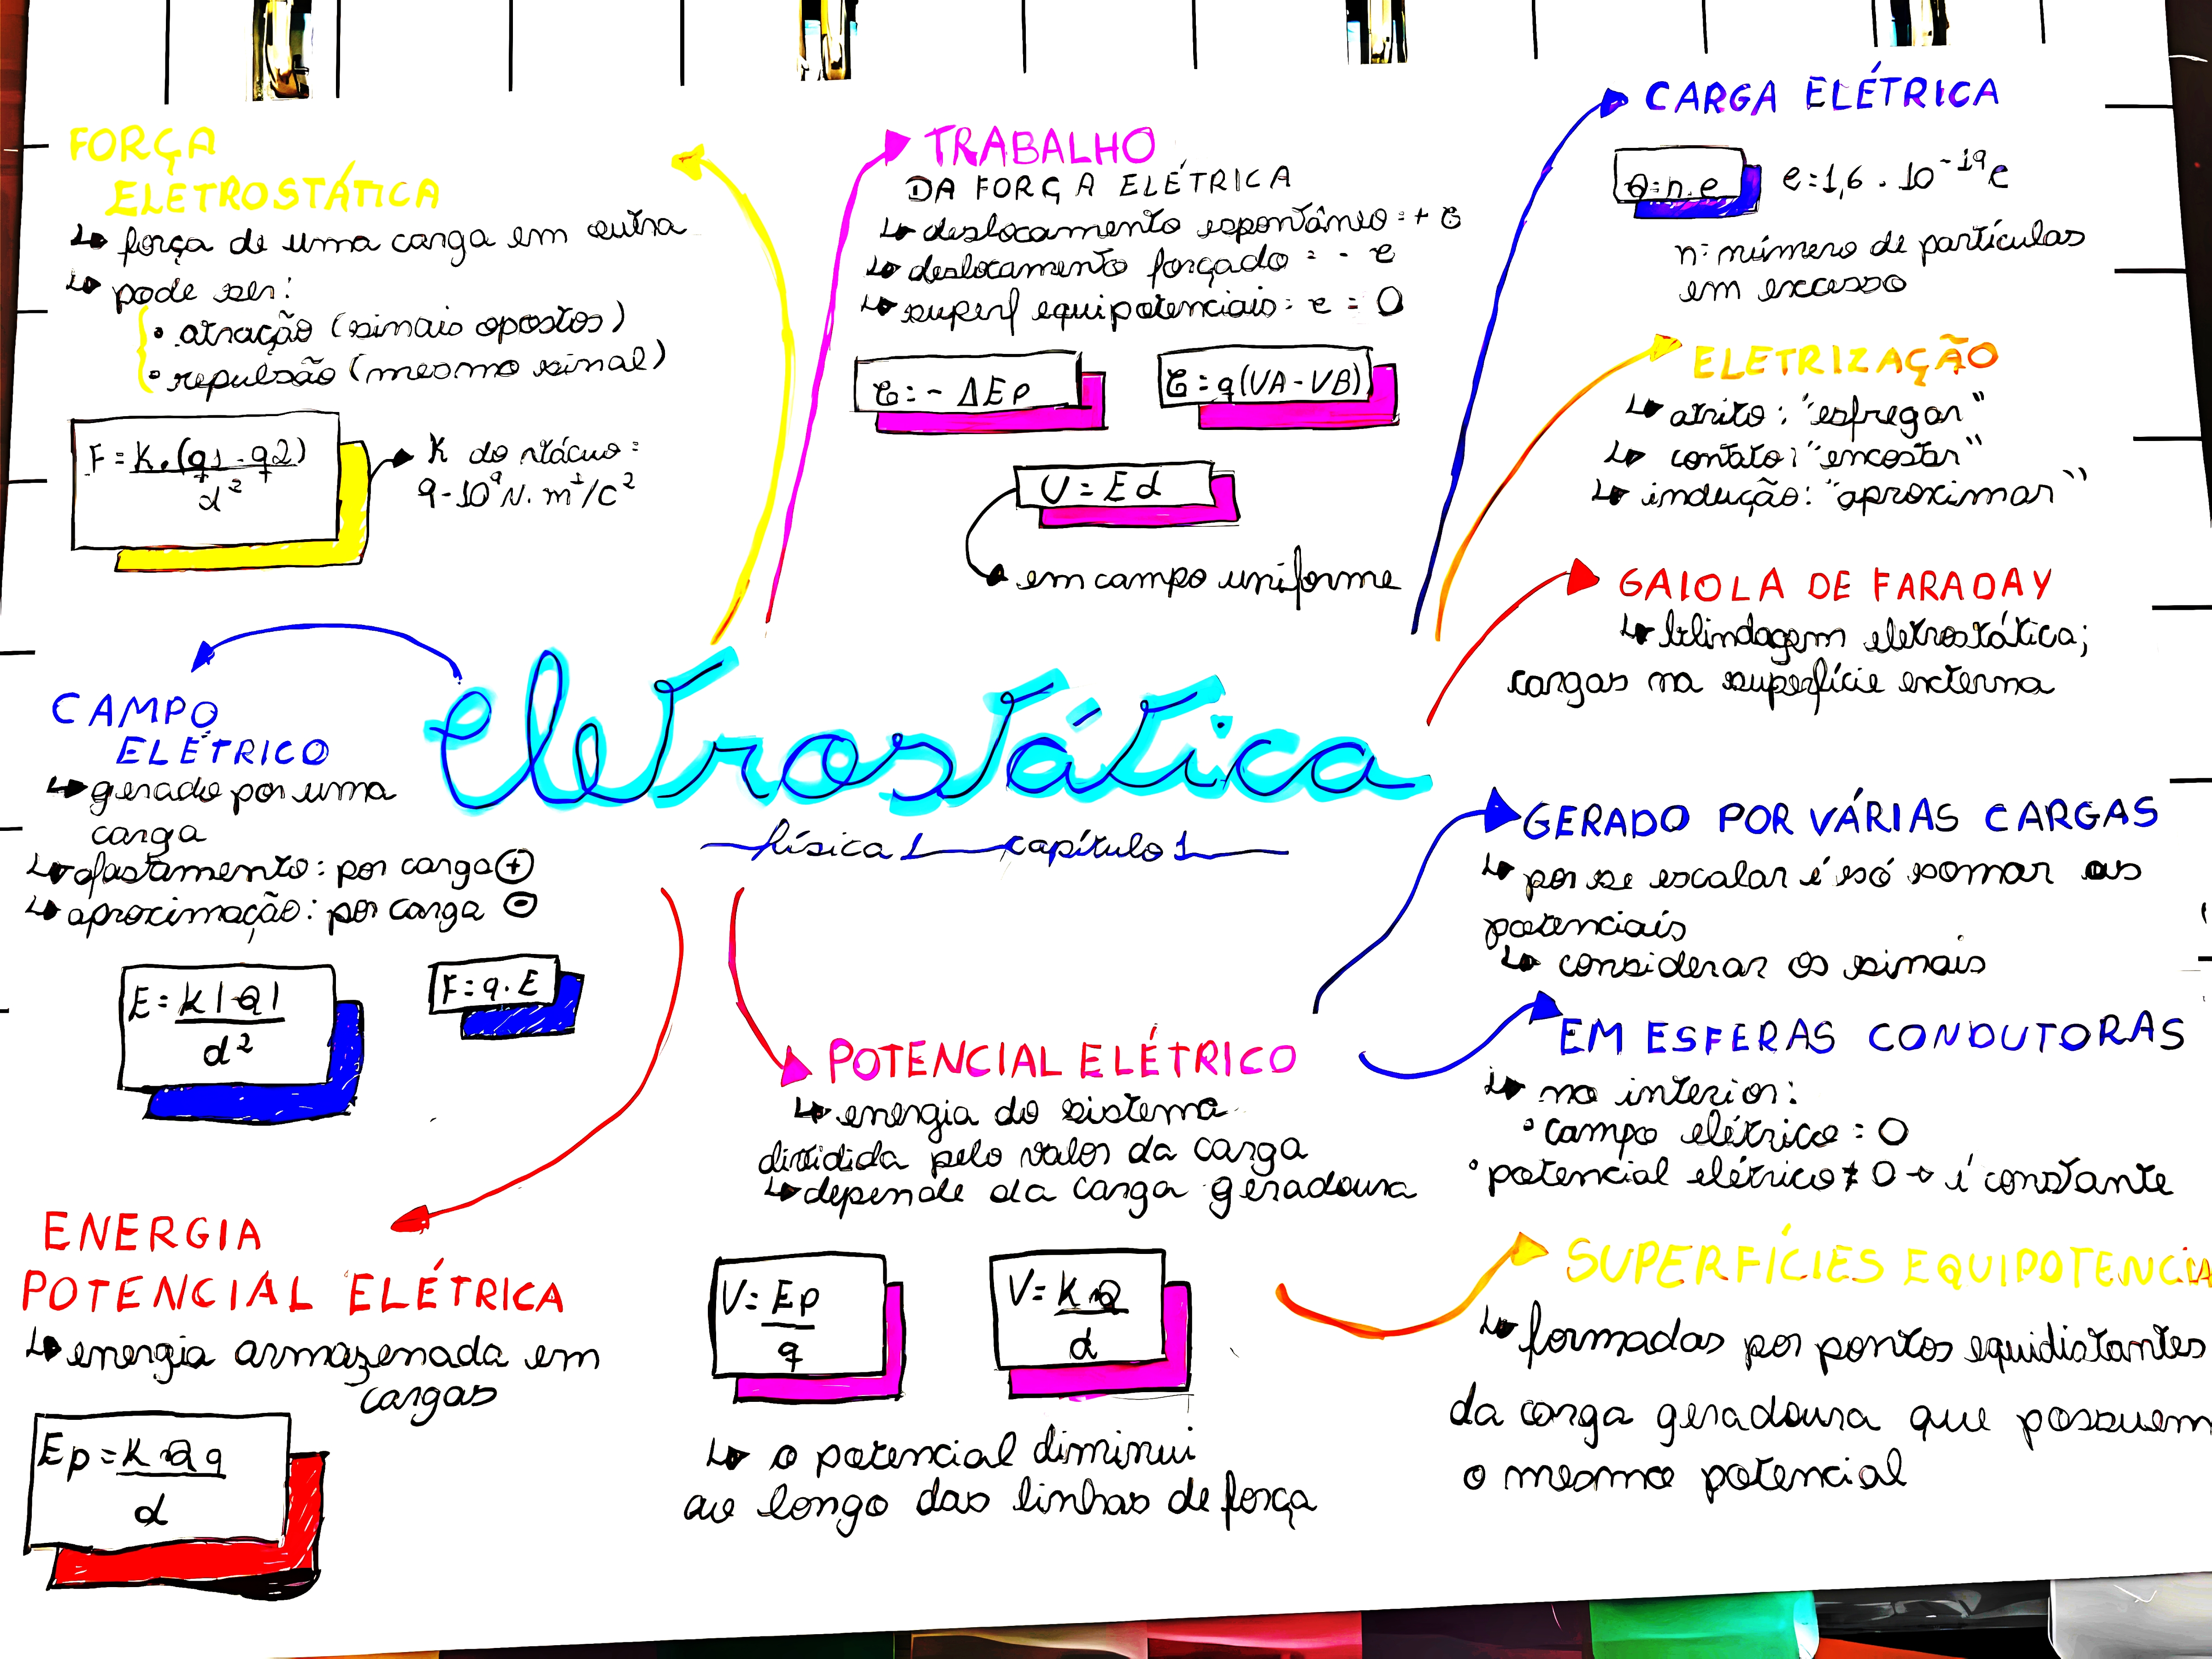 FORÇA
ELETROSTÁTICA
↳ força de uma carga em outra
↳ pode ser:
• atração (sinais opostos)
• repulsão (mesmo sinal)
F = K.(q1.q2)
d²
K do vácuo =
9.10⁹ N.m²/C²
TRABALHO
DA FORÇA ELÉTRICA
↳ deslocamento espontâneo = + τ
↳ deslocamento forçado = - τ
↳ superf equipotenciais = τ = 0
τ = - ΔEp
τ = q(VA - VB)
U = Ed
em campo uniforme
CARGA ELÉTRICA
Q = n.e
e = 1,6 . 10⁻¹⁹ C
n = número de partículas
em excesso
ELETRIZAÇÃO
↳ atrito: "esfregar"
↳ contato: "encostar"
↳ indução: "aproximar"
GAIOLA DE FARADAY
↳ blindagem eletrostática;
cargas na superfície externa
Eletrostática
física 1 capítulo 1
CAMPO
ELÉTRICO
↳ gerado por uma
carga
↳ afastamento: por carga +
↳ aproximação: por carga -
E = K|Q|
d²
F = q.E
ENERGIA
POTENCIAL ELÉTRICA
↳ energia armazenada em
cargas
Ep = K.Qq
d
POTENCIAL ELÉTRICO
↳ energia do sistema
dividida pelo valor da carga
↳ depende da carga geradoura
V = Ep
q
V = K.Q
d
↳ o potencial diminui
ao longo das linhas de força
GERADO POR VÁRIAS CARGAS
↳ por se escalar é só somar os
potenciais
↳ considerar os sinais
EM ESFERAS CONDUTORAS
↳ no interior:
• campo elétrico = 0
• potencial elétrico ≠ 0 → é constante
SUPERFÍCIES EQUIPOTENCIA
↳ formadas por pontos equidistantes
da carga geradoura que possuem
o mesmo potencial